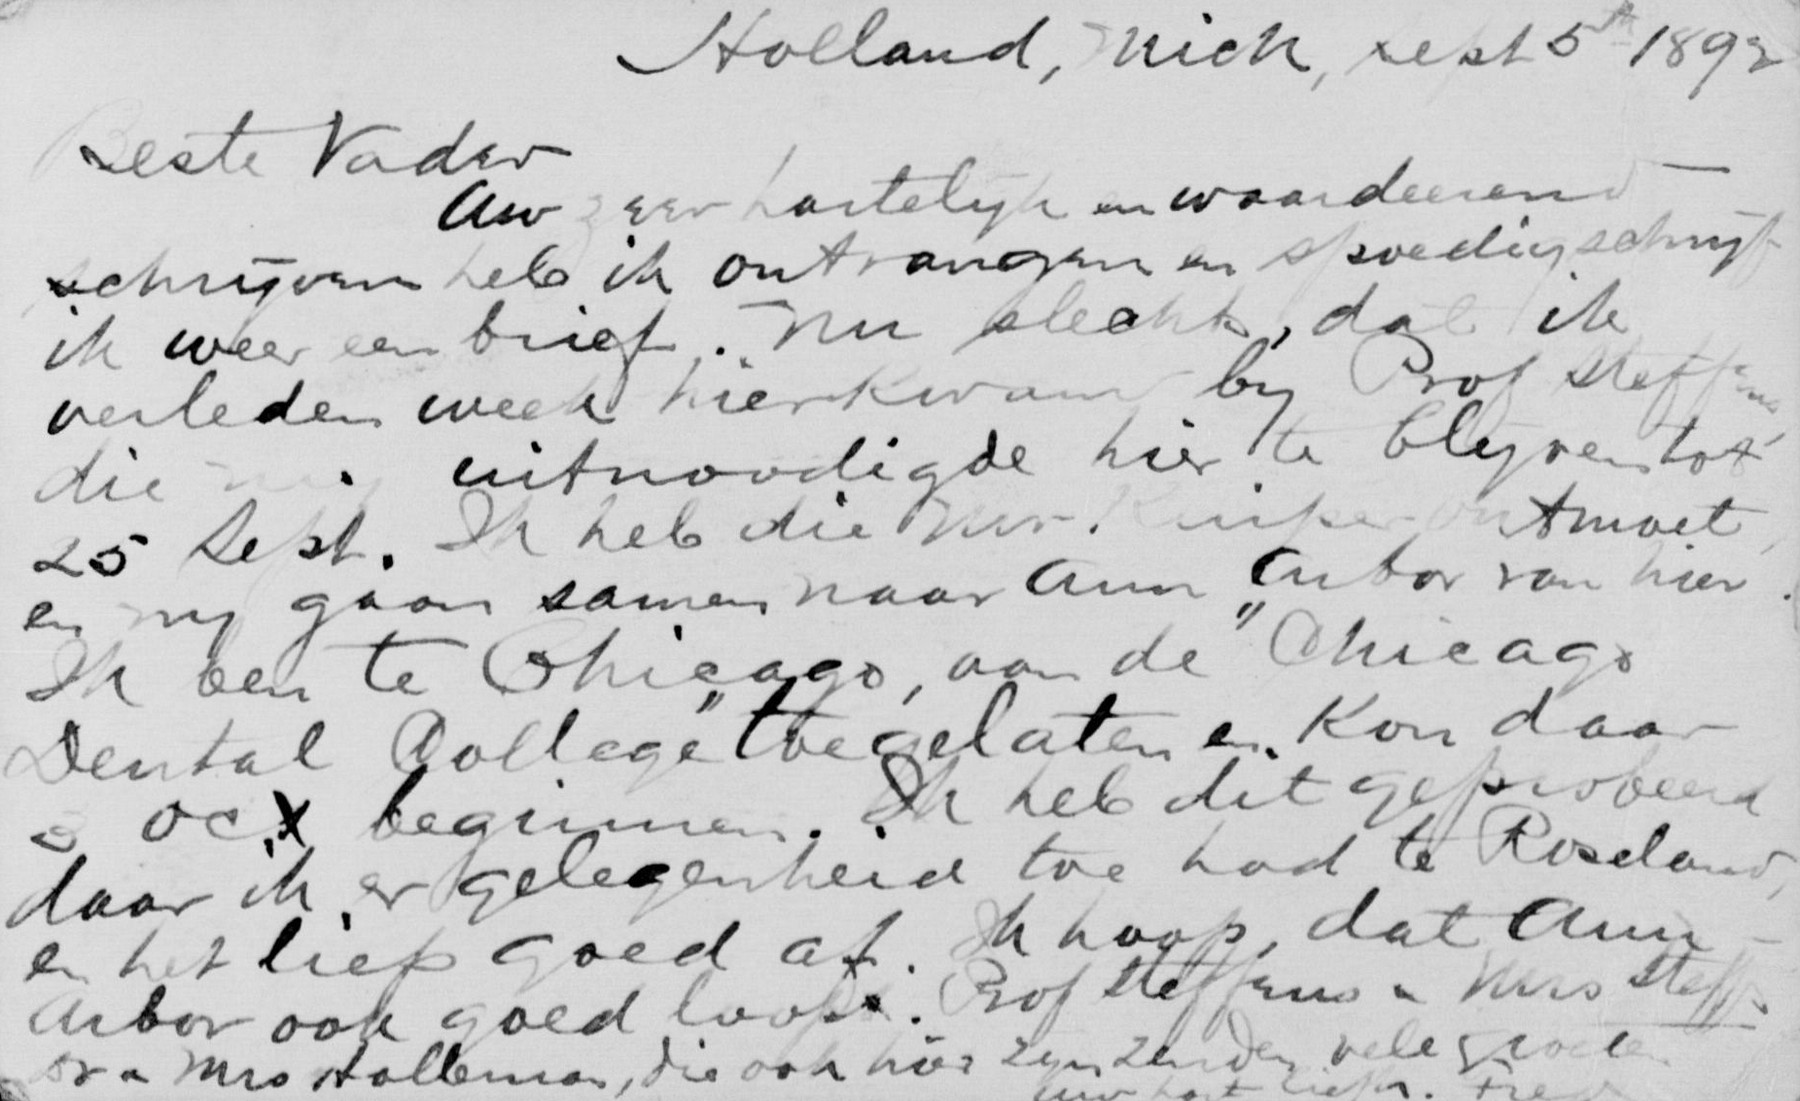 Holland, Mich, Sept 5th 1892
Beste Vader
Uw zeer hartelijk en waardeerend
schrijven heb ik ontvangen en spoedig schrijf
ik weer een brief. Nu slechts, dat ik
verleden week hier kwam by Prof Steffens,
die mij uitnoodigde hier te blijven tot
25 Sept. Ik heb die Mr. Kuiper ontmoet,
en wy gaan samen naar Ann Arbor van hier.
Ik ben te Chicago, aan de "Chicago
Dental College" toegelaten en kon daar
oct beginnen. Ik heb dit geprobeerd
daar ik er gelegenheid toe had te Roseland,
en het liep goed af. Ik hoop, dat Ann
Arbor ook goed loopt. Prof Steffens & Mrs Steff.
Mrs Holleman, die ook hier zyn zenden vele groeten
Uw Fred